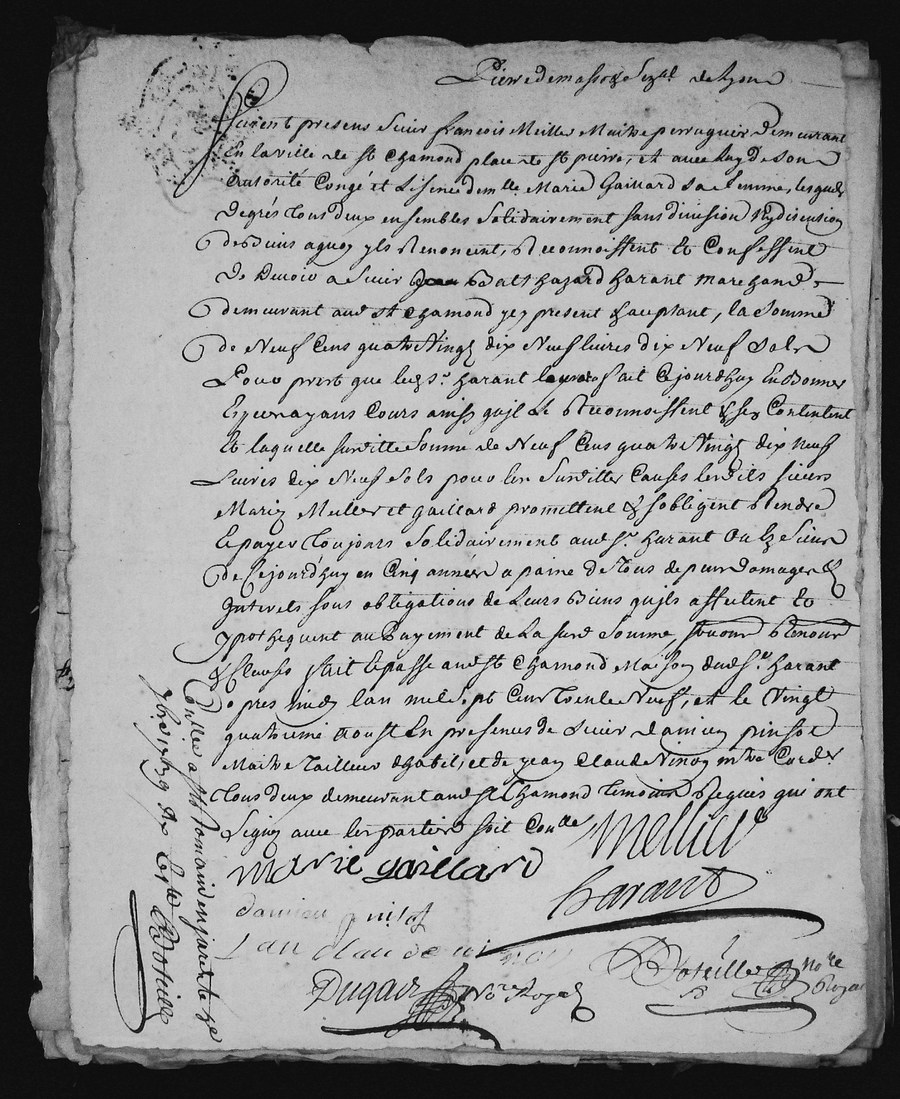 furent present sieur françois Mellier Maitre perruquier demeurant
En la ville de st Chamond place de st pierre, et avec luy de son
autorité Congé et Lisence demlle Marie Gaillard sa femme, lesquels
degrés tous deux ensembles solidairement sans division ny discusion
de biens a quoy yls Renoncent, Reconnoissent Et Confessent
de devoir a sieur Balthazard harant marchand
demeurant aud st Chamond yey present & aceptant, la somme
de Neuf Cens quatre Vingt dix Neuf livres dix Neuf sols
pour prest que led sr. harant leur a fait Cejourdhuy En Bonnes
Especes ayans Cours ainsy qujls Le Reconnoissent & sen Contentent
Et laquelle susditte somme de Neuf Cens quatre Vingt dix neuf
Livres dix Neuf sols pour les susdittes Causes lesdits sieurs
Mariez Mellier et gaillard promettent & sobligent Rendre
Et payer toujours solidairement aud sr. harant ou es siens
de Cejourdhuy en Cinq années a paine de tous depens domages &
Interets sous obligations de Leurs Biens qujls affectent Et
ypothequent au Payement de La susd somme,
& Clauses fait Et passé aud st Chamond Maison dud sr. harant
apres midy lan mil sept Cens trente Neuf, et le Vingt
quatrieme aoust En presences de sieur damien pinsot
Maitre tailleur dhabit, et de jean Claude Vinoy
tous deux demeurant aud st Chamond temoins Requis qui ont
signé avec les parties soit Conlle
Mellier
marie gaillard
harant
damien
jan claude
Dugas Nore Royal
Doteille Nore Royal
Conllé a st Romain en jarest le
7bre 1739
Doteille